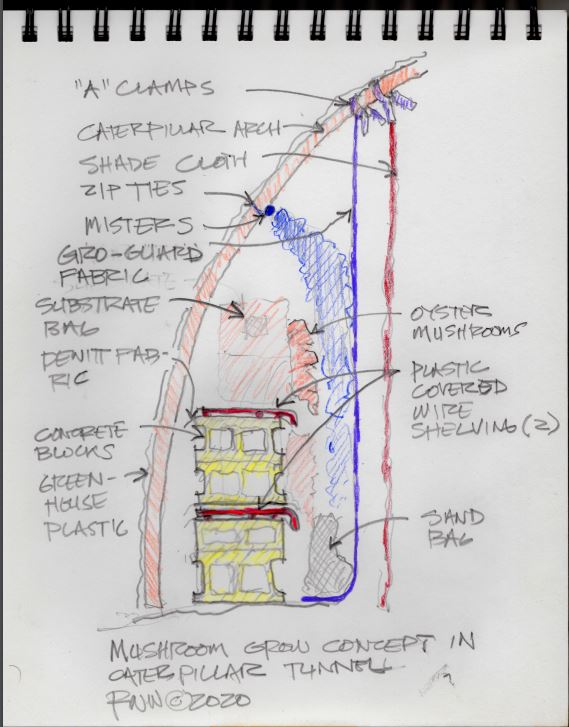 "A" CLAMPS
CATERPILLAR ARCH
SHADE CLOTH
ZIP TIES
MISTERS
GRO-GUARD
FABRIC
SUBSTRATE
BAG
DEWITT FAB-
RIC
CONCRETE
BLOCKS
GREEN-
HOUSE
PLASTIC
OYSTER
MUSHROOMS
PLASTIC
COVERED
WIRE
SHELVING (2)
SAND
BAG
MUSHROOM GROW CONCEPT IN
CATERPILLAR TUNNELL
RNW © 2020